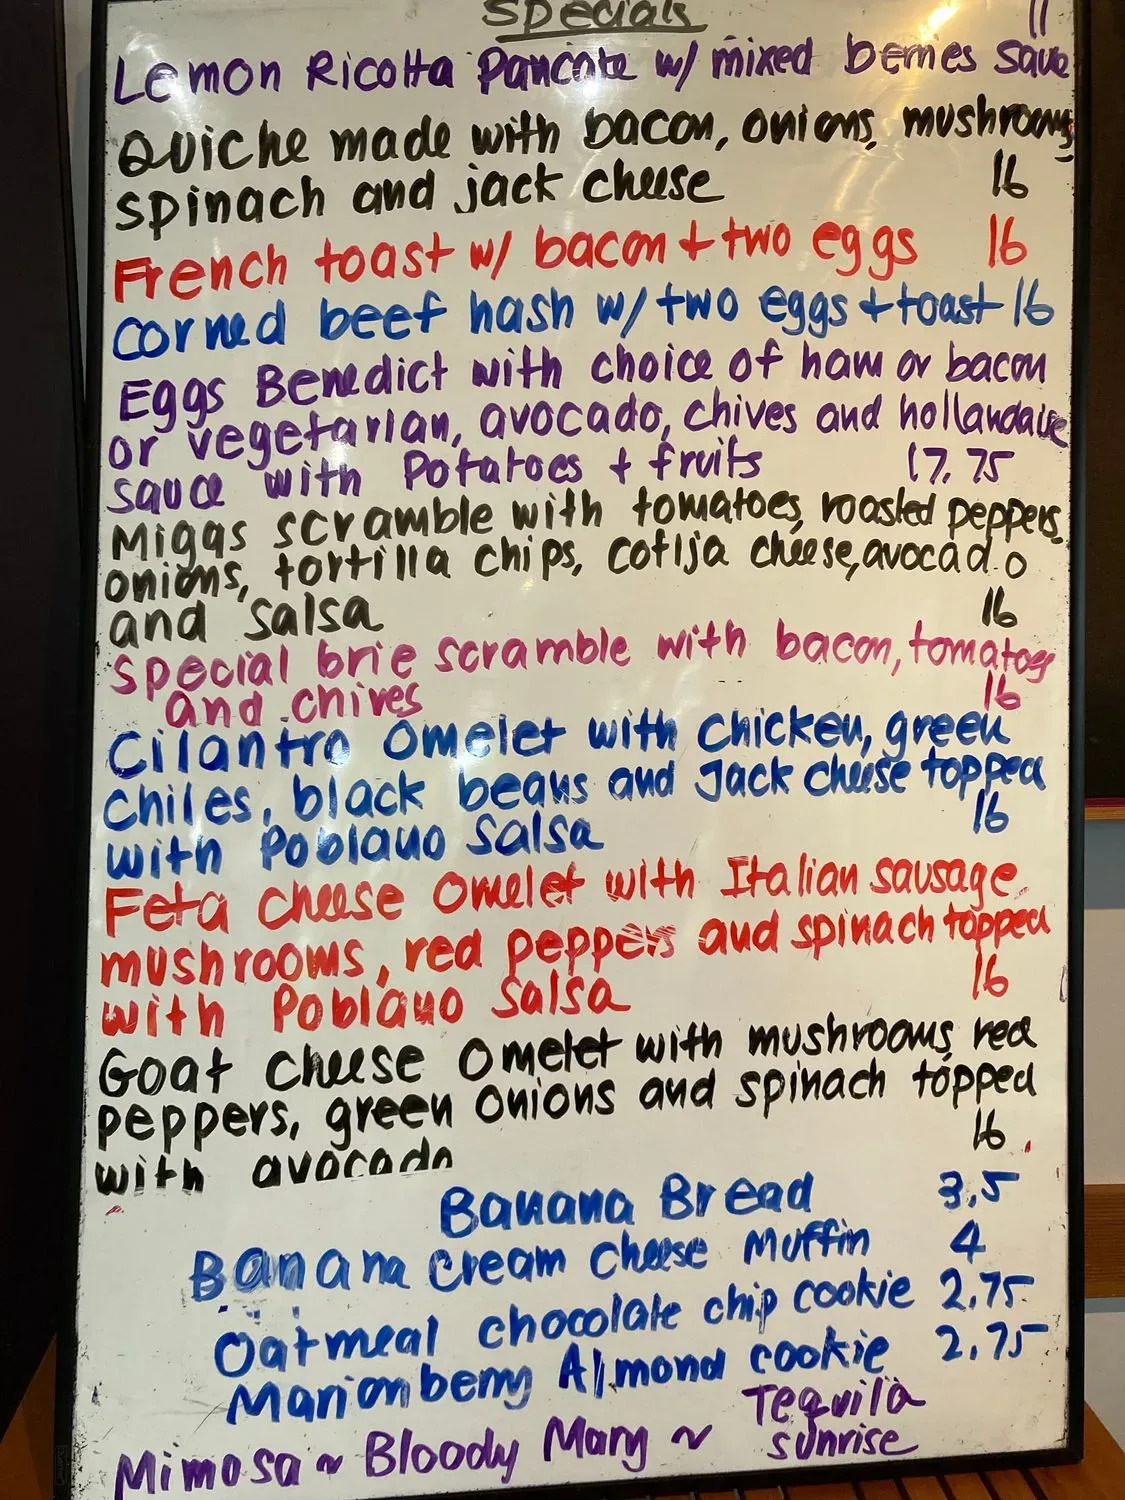 Specials
11
Lemon Ricotta Pancake w/ mixed berries sauce
Quiche made with bacon, onions, mushrooms,
spinach and jack cheese 16
French toast w/ bacon + two eggs 16
Corned beef hash w/ two eggs + toast 16
Eggs Benedict with choice of ham or bacon
or vegetarian, avocado, chives and hollandaise
sauce with Potatoes + fruits 17.75
Migas scramble with tomatoes, roasted peppers,
onions, tortilla chips, cotija cheese, avocado
and salsa 16
Special brie scramble with bacon, tomatoes
and chives 16
Cilantro Omelet with chicken, green
chiles, black beans and Jack cheese topped
with Poblano Salsa 16
Feta cheese Omelet with Italian sausage
mushrooms, red peppers and spinach topped
with Poblano Salsa 16
Goat cheese Omelet with mushrooms, red
peppers, green onions and spinach topped
with avocado 16
Banana Bread 3.5
Banana cream cheese Muffin 4
Oatmeal chocolate chip cookie 2.75
Marionberry Almond cookie 2.75
Mimosa ~ Bloody Mary ~ Tequila
sunrise